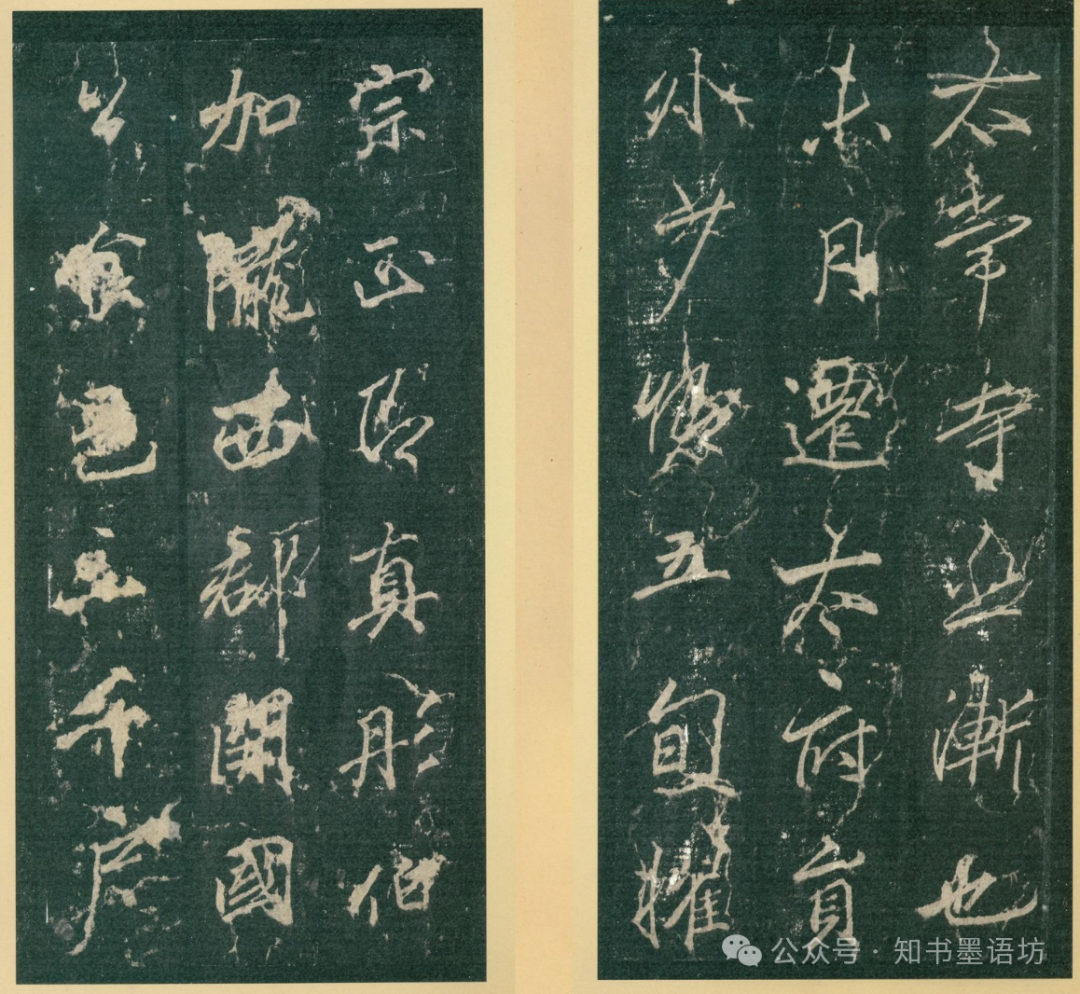 太常寺丞漸也
未月遷太府員
外少卿五旬擢
宗正即真彤伯
加隴西郡開國
公食邑二千戶
公众号·知书墨语坊